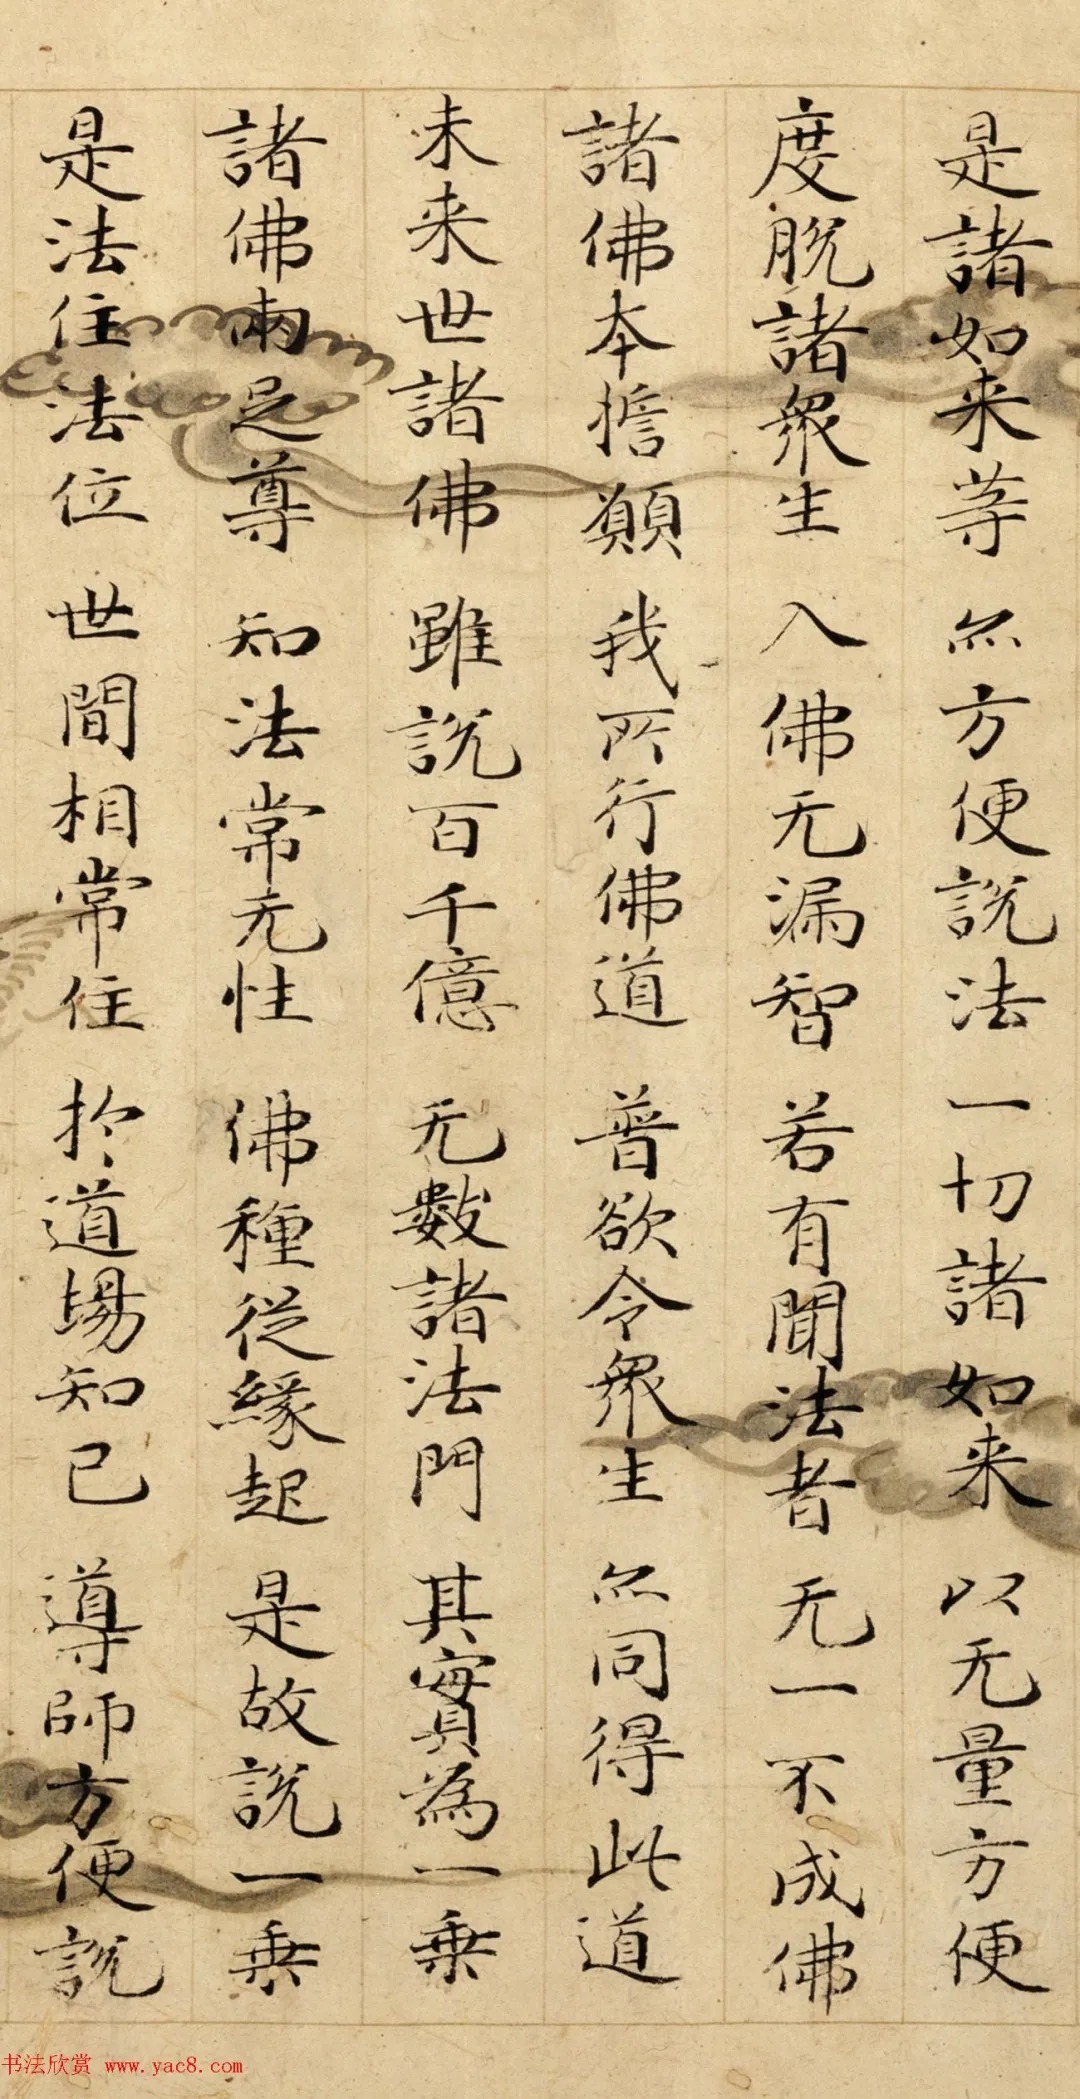 是諸如来等 亦方便說法 一切諸如来 以无量方便
度脫諸衆生 入佛无漏智 若有聞法者 无一不成佛
諸佛本擔願 我所行佛道 普欲令衆生 亦同得此道
未来世諸佛 雖說百千億 无數諸法門 其實為一乗
諸佛兩足尊 知法常无性 佛種從緣起 是故說一乗
是法住法位 世間相常住 扵道場知已 導師方便說
书法欣赏 www.yac8.com